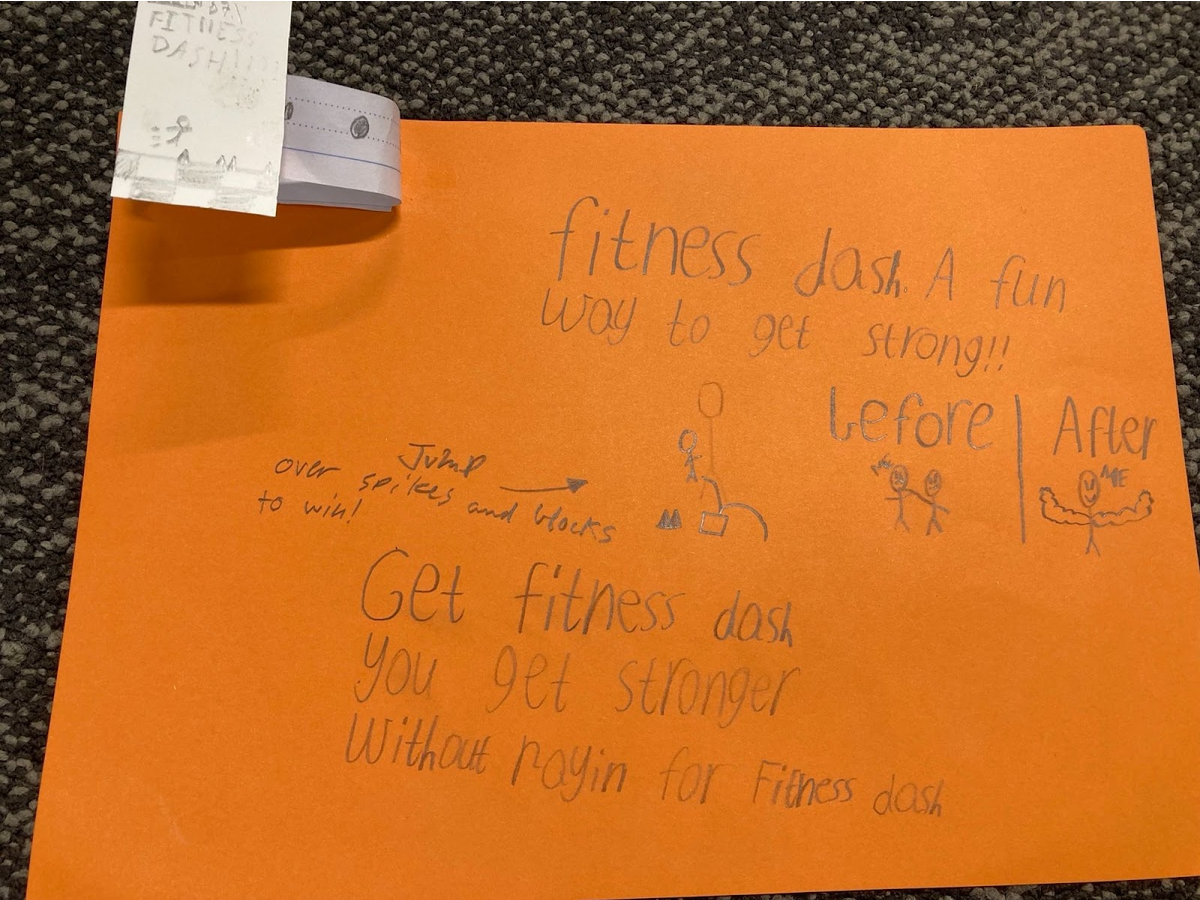 FITNESS
DASH!!!!
fitness dash. A fun
way to get strong!!
before | After
ME
Jump
over spikes and blocks
to win!
Get fitness dash
you get stronger
Without payin for Fitness dash